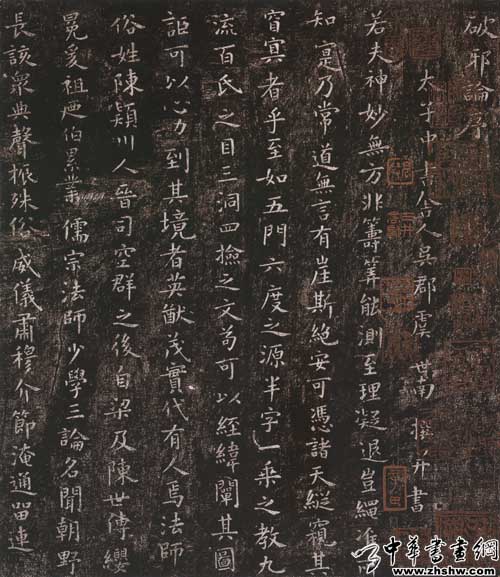 破邪論序
太子中書舍人吳郡虞世南撰并書
若夫神妙無方非籌筭能測至理凝邈豈繩准
知寔乃常道無言有崖斯絕安可憑諸天縱窺其
窅冥者乎至如五門六度之源半字一乘之教九
流百氏之目三洞四檢之文苟可以經緯闡其圖
詎可以心力到其境者英猷茂實代有人焉法師
俗姓陳潁川人晉司空群之後自梁及陳世傳纓
冕爰祖迺伯累業儒宗法師少學三論名聞朝野
長該眾典聲振殊俗威儀肅穆介節淹通留連
中華書畫網
www.zhshw.com